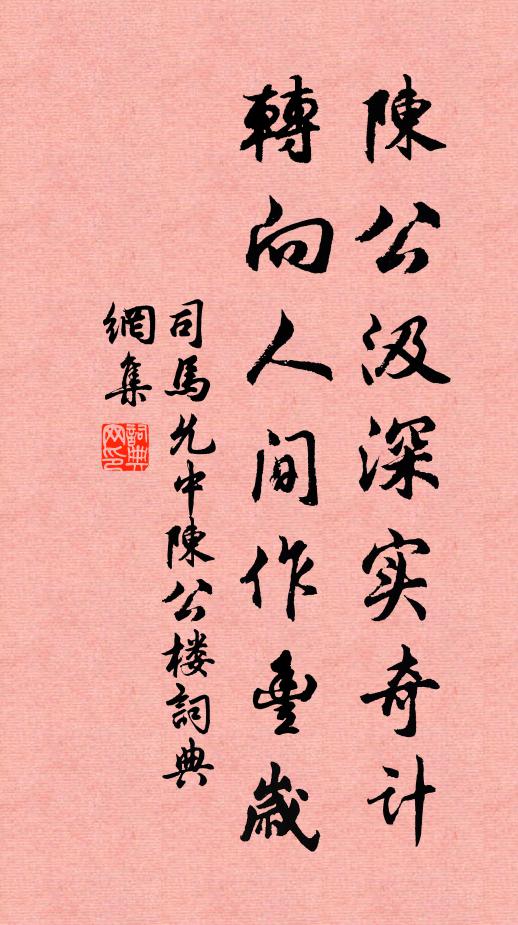 陳公汲深实奇計
轉向人間作豊歲
司馬允中陳公楼詞典
網集
詞典
网印